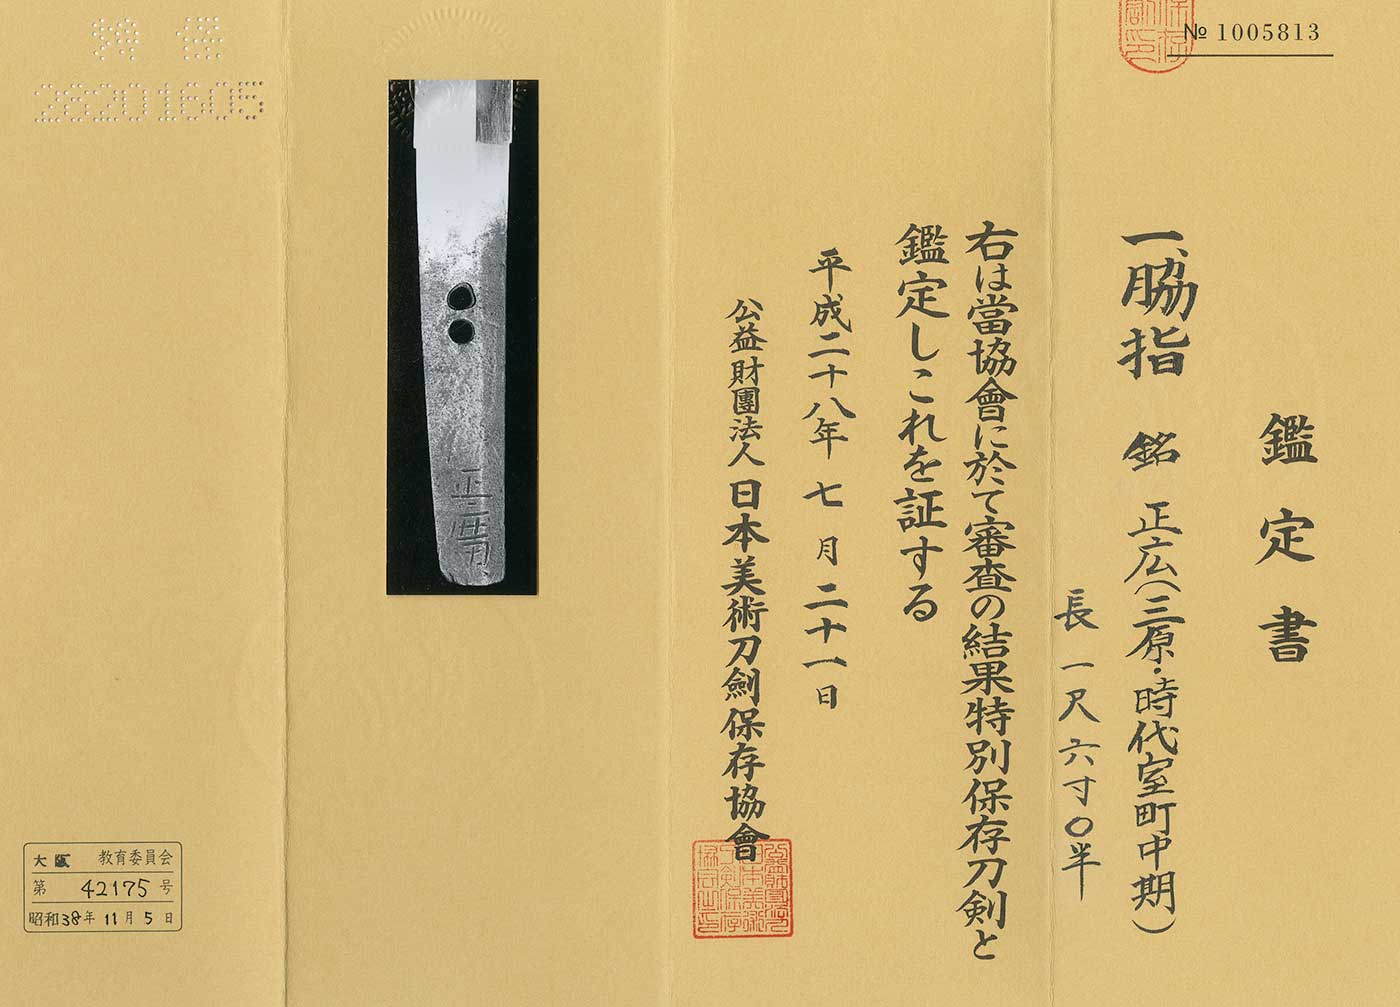 № 1005813
鑑定書
一、脇指 銘 正広(三原・時代室町中期)
長 一尺六寸〇半
右は當協會に於て審査の結果特別保存刀剣と
鑑定しこれを証する
平成二十八年 七月二十一日
公益財團法人 日本美術刀劍保存協會
正廣
特保
28201605
大阪 教育委員会
第 42175 号
昭和38年 11月 5日